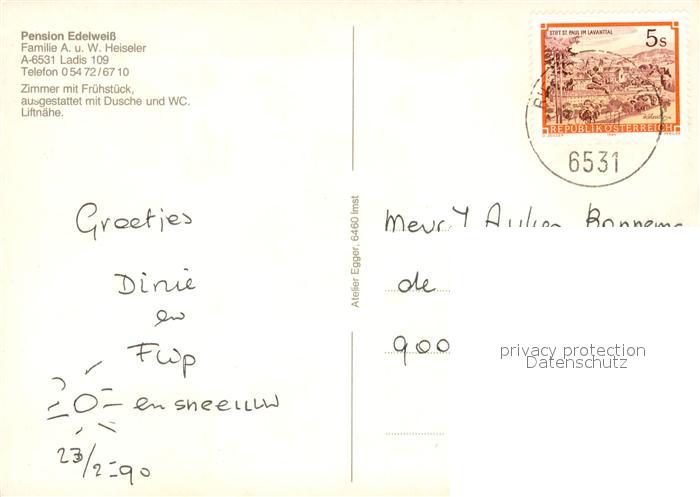 Pension Edelweiß
Familie A. u. W. Heiseler
A-6531 Ladis 109
Telefon 0 54 72/67 10
Zimmer mit Frühstück,
ausgestattet mit Dusche und WC.
Liftnähe.
STIFT ST. PAUL IM LAVANTTAL
5s
REPUBLIK ÖSTERREICH
6531
Atelier Egger, 6460 Imst
Groetjes
Dinie
en
Flip
en sneeuw
23/2-90
Mevr.
de
900
privacy protection
Datenschutz